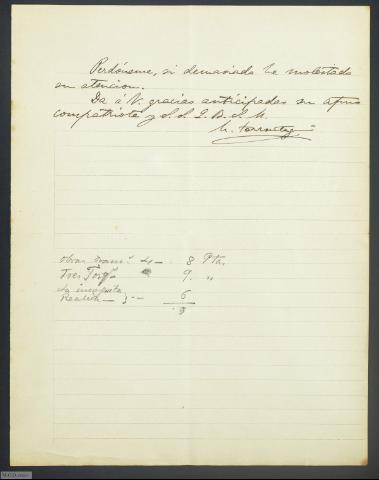 Perdóneme, si demasiado he molestado
su atencion.
Da á V. gracias anticipadas su afmo
compatriota y S. S. Q. B. S. M.
Obras dram.s 4 - 8 Ptas
Tres 9. "
La incognita
Realidad } - - 6